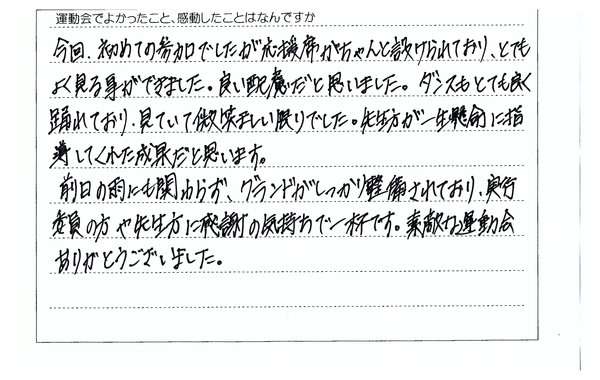 運動会でよかったこと、感動したことはなんですか
今回、初めての参加でしたが応援席がちゃんと設けられており、とても
よく見る事ができました。良い配慮だと思いました。ダンスもとても良く
踊れており、見ていて微笑ましい限りでした。先生方が一生懸命に指
導してくれた成果だと思います。
前日の雨にも関わらず、グランドがしっかり整備されており、実行
委員の方や先生方に感謝の気持ちで一杯です。素敵な運動会
ありがとうございました。